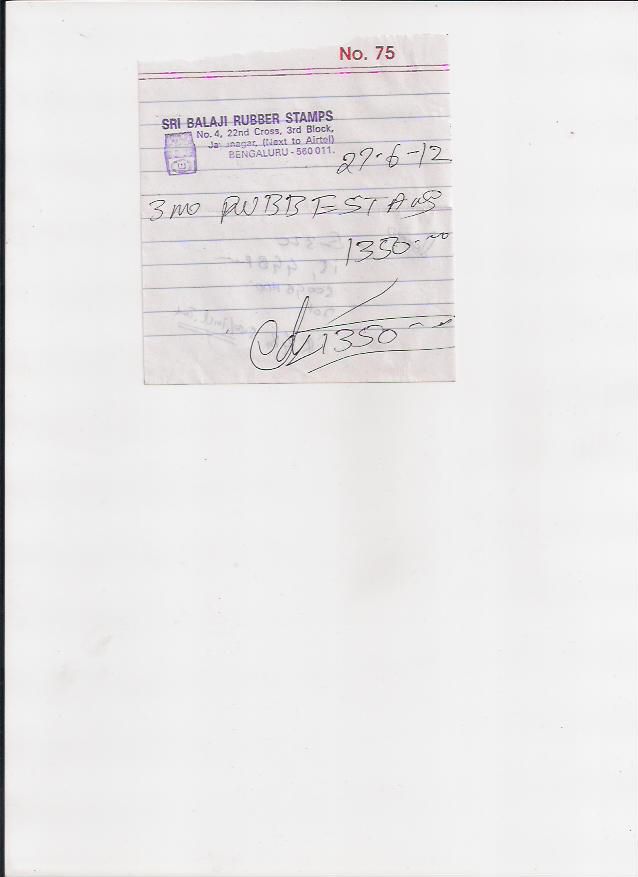 No. 75
SRI BALAJI RUBBER STAMPS
No. 4, 22nd Cross, 3rd Block,
(Next to Airtel)
BENGALURU - 560 011.
27-6-12
3 mo RUBBE STAMS
1350-00
1350-00